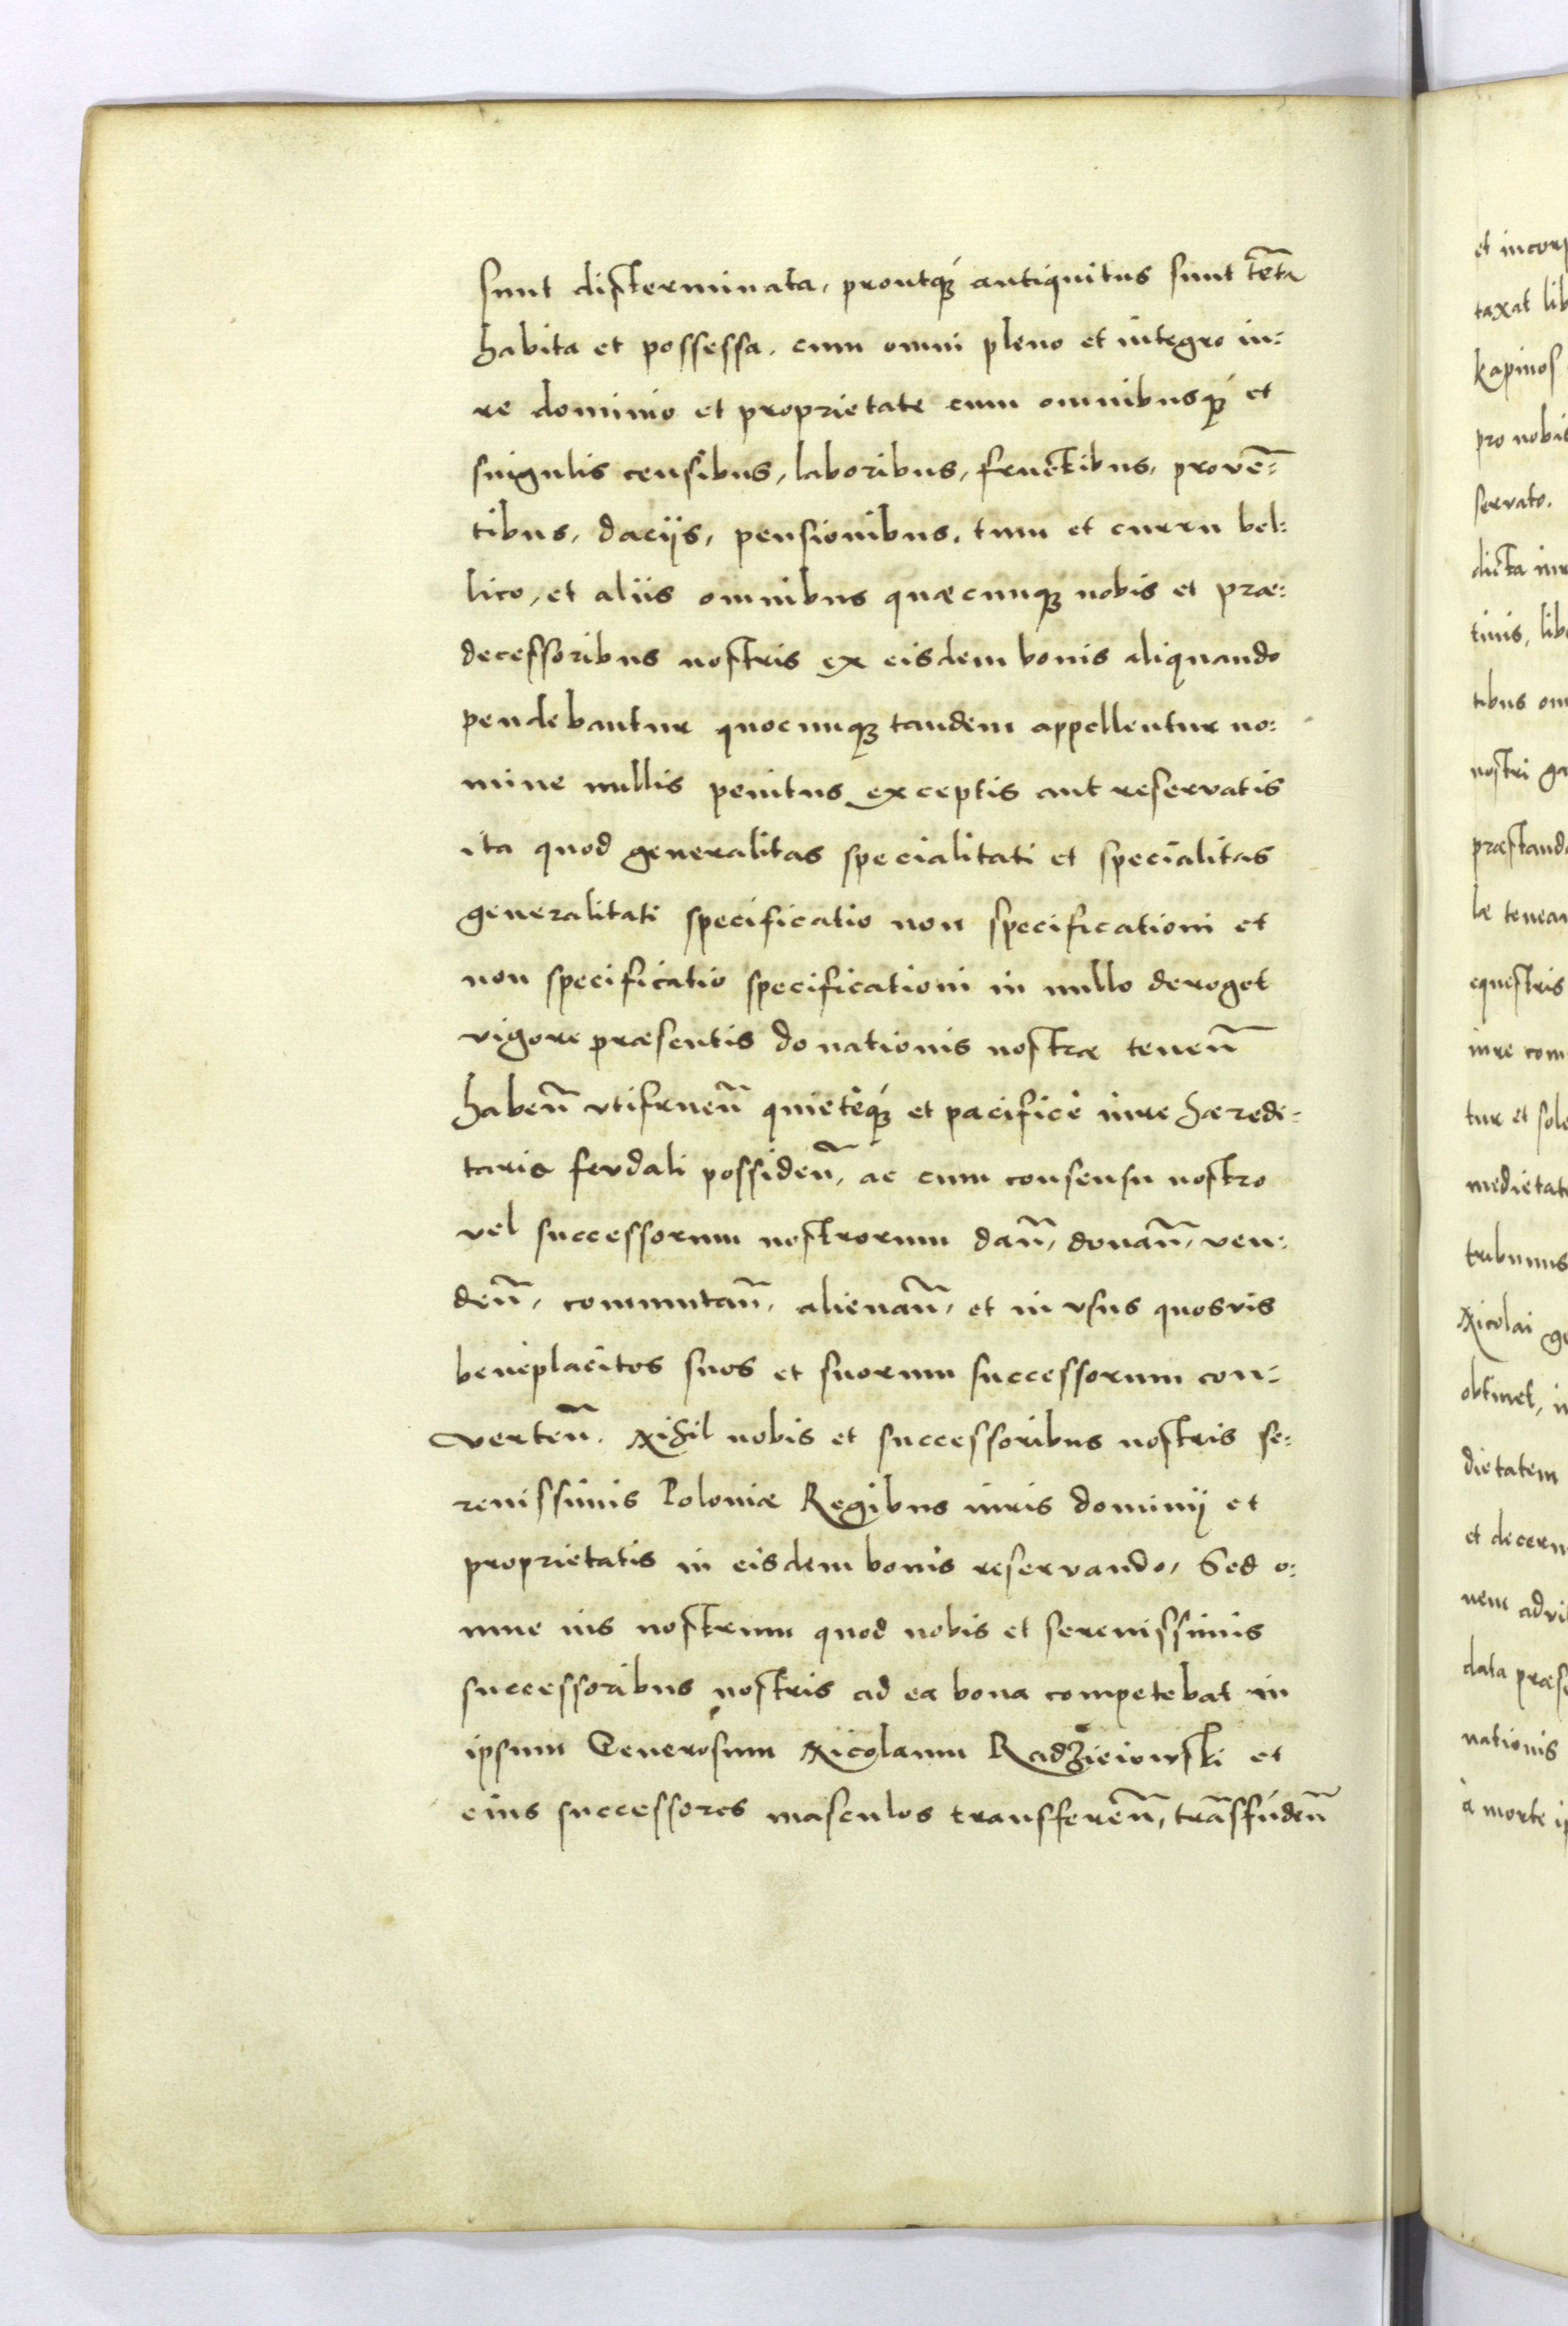 sunt disterminata, proutq́ꝫ antiquitus sunt tēta
habita et possessa. cum omni pleno et integro iu:
re dominio et proprietate cum omnibusq́ꝫ et
singulis censibus, laboribus, fructibus, provē:
tibus, dacijs, pensionibus, tum et curru bel:
lico, et aliis omnibus quæcunqꝫ nobis et præ:
decessoribus nostris ex eisdem bonis aliquando
pendebantur quocunqꝫ tandem appellentur no:
mine nullis penitus exceptis aut reservatis
ita quod generalitas specialitati et specialitas
generalitati specificatio non specificationi et
non specificatio specificationi in nullo deroget
vigore præsentis donationis nostræ teneñ
habeñ vtifrueñ quietèq́ꝫ et pacificè iure hæredi-
tario fevdali possideñ, ac cum consensu nostro
vel successorum nostrorum dañ, donañ, ven:
deñ, commutañ, alienañ, et in vsus quosvis
beneplacitos suos et suorum successorum con-
verteñ. Nihil nobis et successoribus nostris se:
renissimis Poloniæ Regibus iuris dominij et
proprietatis in eisdem bonis reservando, Sed o:
mne ius nostrum quod nobis et serenissimis
successoribus nostris ad ea bona competebat in
ipsum Generosum Nicolaum Radzieiowski et
eius successores masculos transfereñ, trāsfūdeñ
et incorp
taxat lib
Kapinos
pro nobis
servato.
dicta iur
tinis, lib
tibus om
nostri ga
præstand
læ tenea
equestris
iure com
tur et sole
medietat
tribunus
Nicolai ge
obtinet, i
dietatem
et decern
nem advi
data præs
nationis
à morte ip